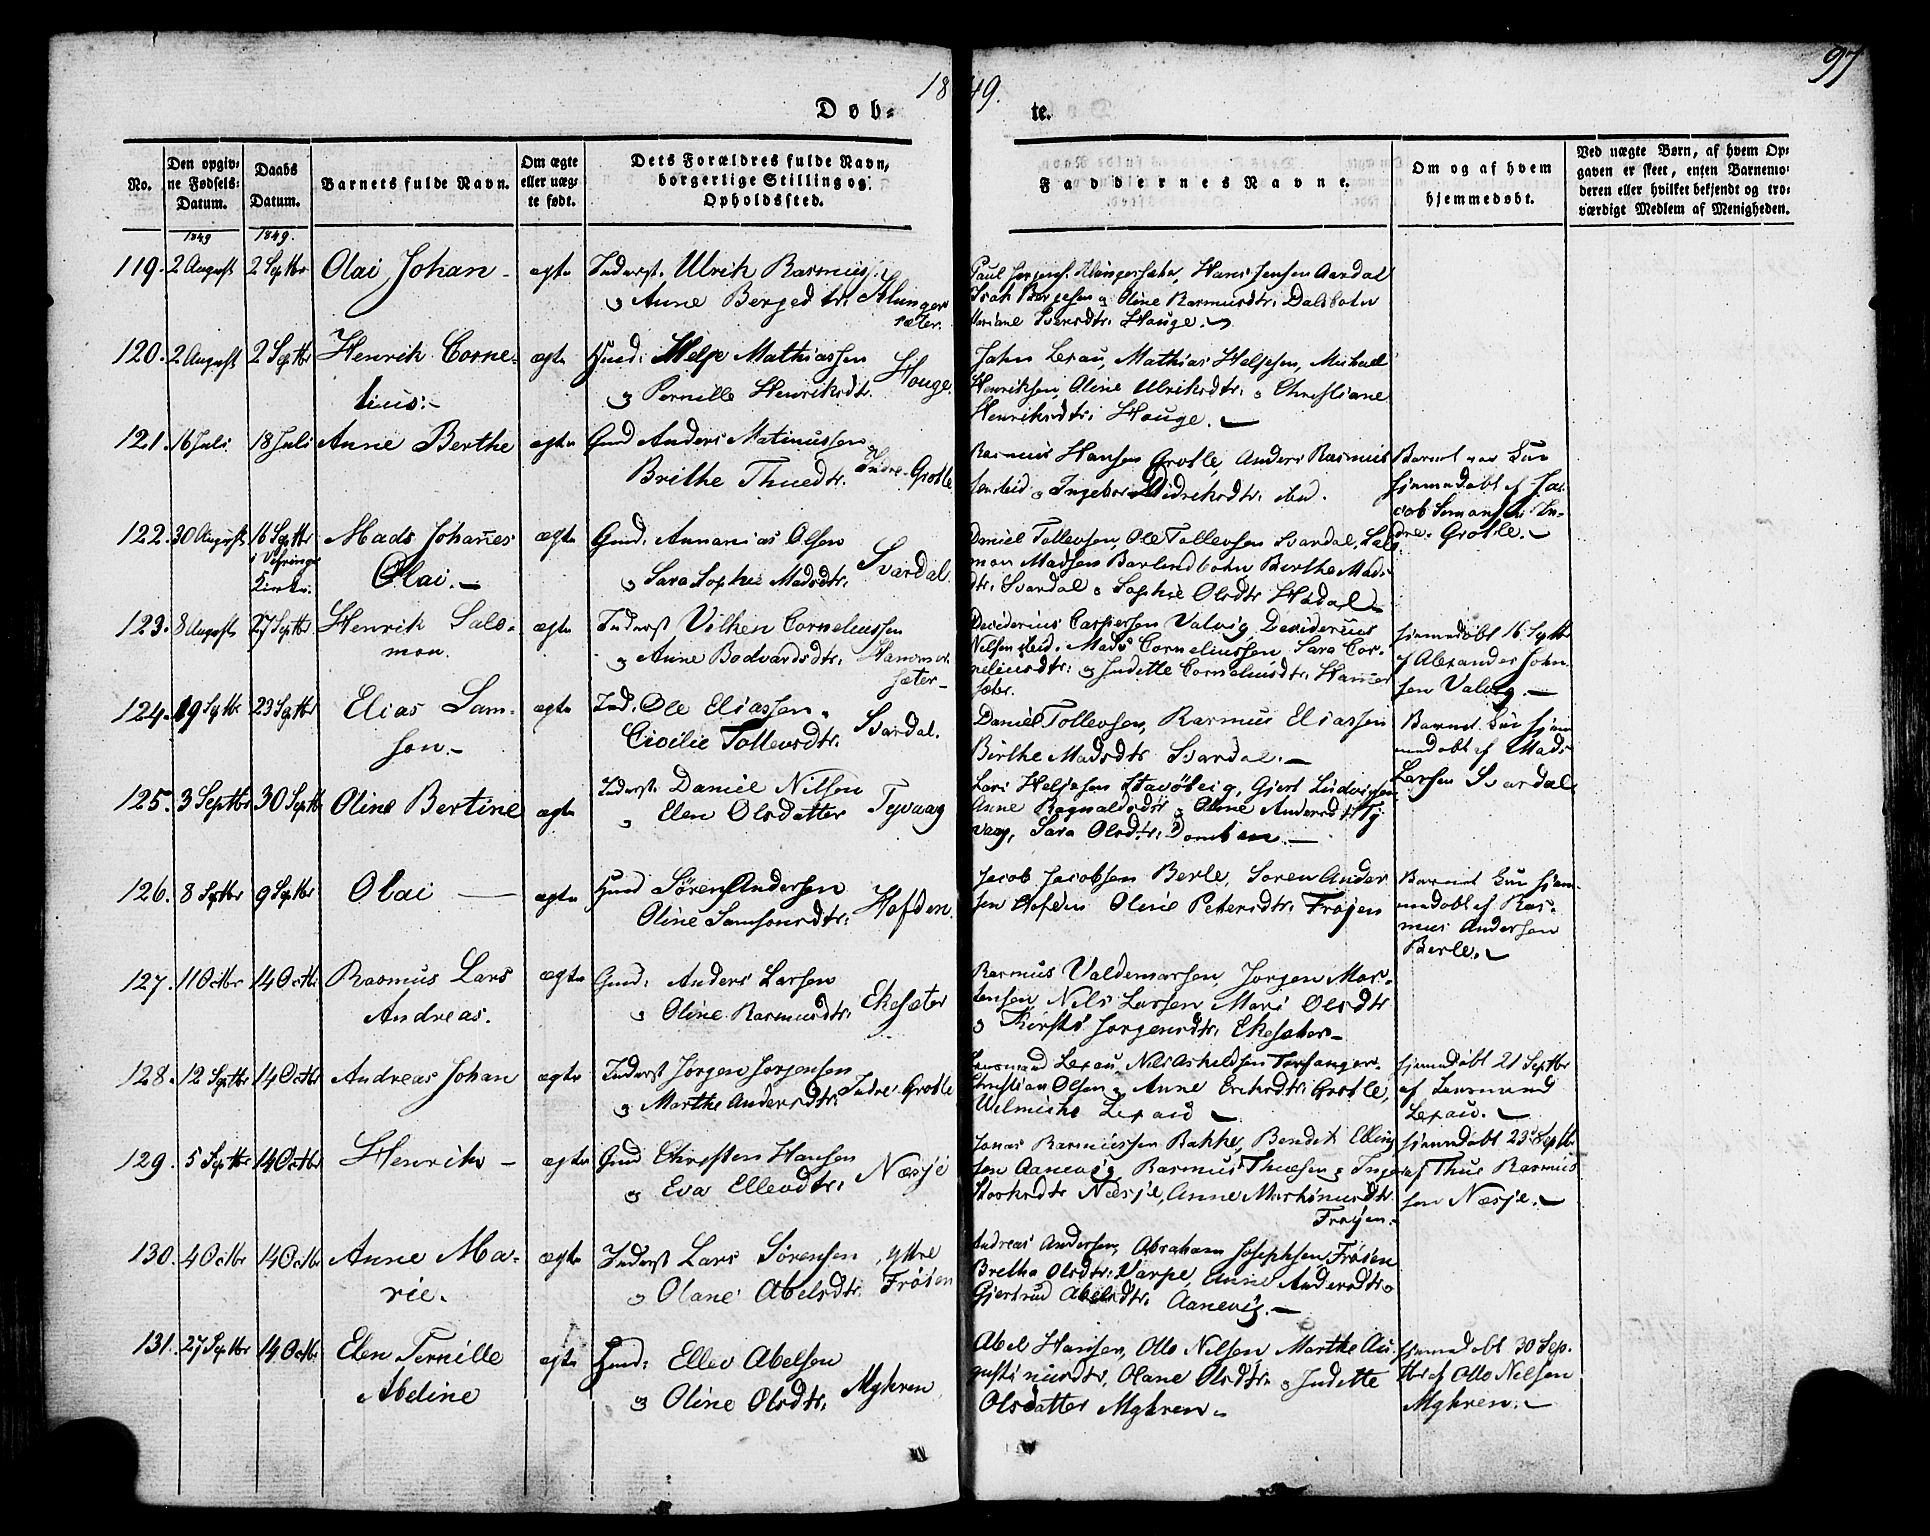 1849.
97
Døb-
te.
No.
Den opgiv-
ne Fødsels-
Datum.
Daabs
Datum.
Barnets fulde Navn.
Om ægte
eller uæg-
te født.
Dets Forældres fulde Navn,
borgerlige Stilling og
Opholdssted.
Faddernes Navne.
Om og af hvem
hjemmedøbt.
Ved uægte Børn, af hvem Op-
gaven er skeet, enten Barnemo-
deren eller hvilket bekjendt og tro-
værdigt Medlem af Menigheden.
1849
1849.
119. 2 August 2 Septbr Olai Johan - ægte Inderst. Ulrik Rasmuss.
og Anne Berged tr. Klunger
sæter.
Paul Klungersæter, Hans Jensen Aardal
Isak Børgesen og Oline Rasmusdtr. Dalsbotn
Iversdtr. Houge.
120. 2 August 2 Septbr Henrik Corne-
lius. -
ægte Huusm: Helje Mathiassen
og Pernille Henriksdtr.
Houge.
John Lexau, Mathias Helgesen, Michael
Henriksen, Oline Ulriksdtr. og Christiane
Henriksdtr. Houge.
121. 16 Juli 18 Juli Anne Berthe ægte Gmd Anders Matinussen
Brithe Thuedtr.
Indre-Grotle
Rasmus Hansen Grotle, Anders Rasmus
sen ibid og Ingebor Didriksdtr. ibd.
Barnet var
hjemmedøbt af Ja-
cob In-
dre-Grotle.
122. 30 August 16 Septbr
i Vefrings
Kirke.
Mads Johannes
Olai.
ægte Gmd. Annanias Olsen
og Sara Sophie Madsdtr.
Svardal.
Daniel Tollevsen, Ole Tollevsen Svardal, Salo
mon Madsen Barlindbotn Berthe Mads-
dtr. Svardal og Sophie Olsdtr
123. 8 August 27 Septbr Henrik Salo-
mon.
ægte Inderst Vilken Corneliussen
og Anne Bodvardsdtr.
Hammer-
sæter
Desiderius Caspersen Valvig, Desiderius
Nilsen ibid. Mads Corneliussen, Sara Cor-
neliusdtr. og Judette Corneliusdtr. Hamer
sæter.
hjemmedøbt 16 Septbr
af Alexander John
sen Valvig.
124. 19 Septbr 23 Septbr Elias Sam-
son.
ægte Ind. Ole Eliassen
Cicilie Tollevsdtr.
Svardal.
Daniel Tollevsen, Rasmus Eliassen
Birthe Madsdtr Svardal.
Barnet hjem
medøbt af Mads
Larsen Svardal.
125. 3 Septbr 30 Septbr Oline Bertine ægte Inderst: Daniel Nilsen
og Elen Olsdatter
Tyvaag
Lars Heljesen Stavøteig, Gjert Ludvigsen
Anne Ragnaldsdtr og Oline Andersdtr Ty
vaag, Sara Olsdtr. Domben.
126. 8 Septbr 9 Septbr Olai ægte Huusm Søren Andersen
Oline Samsonsdtr.
Hofden.
Jacob Jacobsen Berle, Søren Ander
sen Hofden Oline Petersdtr. Frøjen
Barnet hjem-
medøbt af Ras-
mus Andersen
Berle.
127. 11 Octbr 14 Octbr Rasmus Lars
Andreas.
ægte Gmd: Anders Larsen
og Oline Rasmusdtr.
Ekesæter
Rasmus Valdemarsen, Jørgen Mor-
tensen Nils Larsen, Mari Olsdtr
og Kirsti Jørgensdtr. Ekesæter
128. 12 Septbr 14 Octbr Andreas Johan ægte Inderst Jørgen Jørgensen
og Marthe Andersdtr.
Indre-Grotle
Lensmand Lexau, Nils Askildsen Torfanger.
Christian Olsen og Anne Eriksdtr. Grotle,
Lexau
hjemmedøbt 21 Septbr
af Lensmand
Lexau.
129. 5 Septbr 14 Octbr Henrik - ægte Gmd Christen Hansen
og Eva Ellevdtr.
Næsje
Jonas Rasmussen Bakke, Bendit Elling
sen Aanevig Rasmus Thuesen og Inge
Næsje, Anne Martinusdtr
Frøjen.
hjemmedøbt 23 Septbr
af Thue Rasmus
sen Næsje.
130. 4 Octbr 14 Octbr Anne Ma-
rie.
ægte Inderst Lars Sørensen
og Olane Abelsdtr.
ytre
Frøien
Andreas Andersen, Abraham Josephsen Frøien
Bretha Olsdtr. Varpe, Anne Andersdtr
Gjertrud Abelsdtr. Aanevig.
131. 27 Septbr 14 Octbr Elen Pernille
Abeline
ægte Huusm: Ellev Abelsen
og Oline Olsdtr.
Myhren
Abel Hansen, Otto Nilsen Marthe Au-
gustinusdtr, Olane Olsdtr. og Judette
Olsdatter Myhren.
hjemmedøbt 30 Sep-
tbr af Otto Nilsen
Myhren.